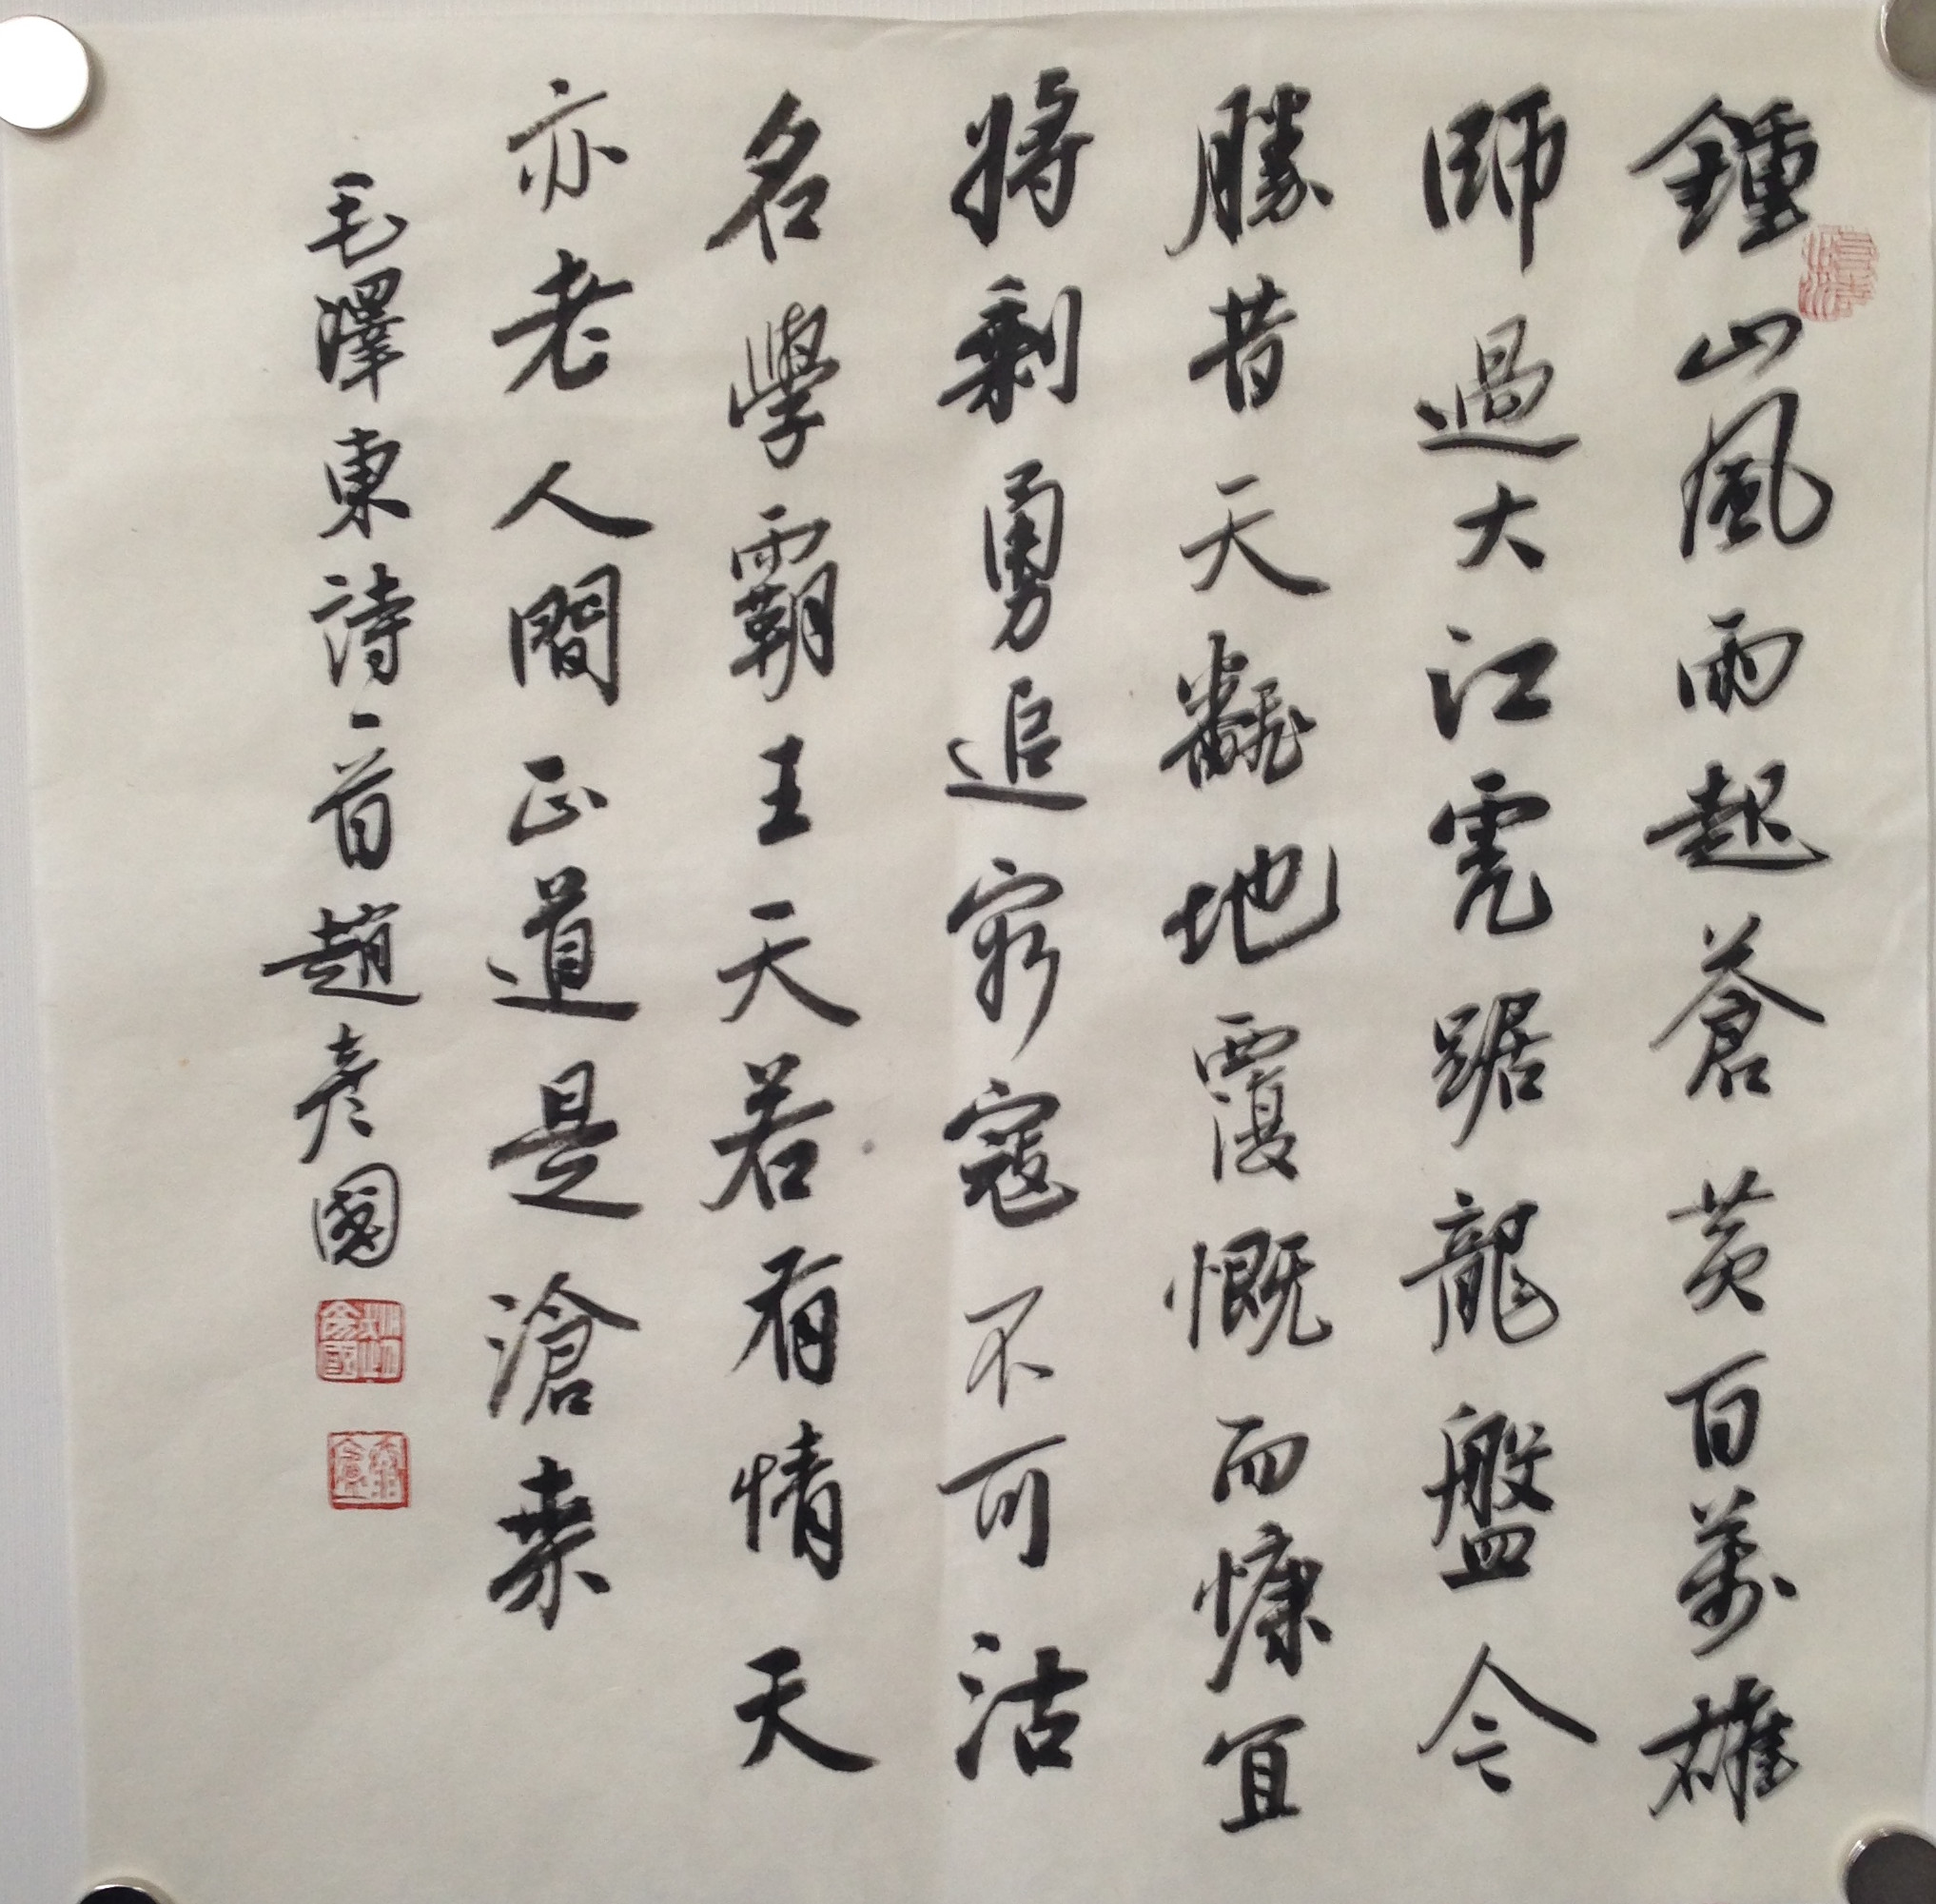 鍾山風雨起蒼黃百萬雄
師過大江虎踞龍盤今
勝昔天翻地覆慨而慷宜
將剩勇追窮寇不可沽
名學霸王天若有情天
亦老人間正道是滄桒
毛澤東詩一首趙彥國